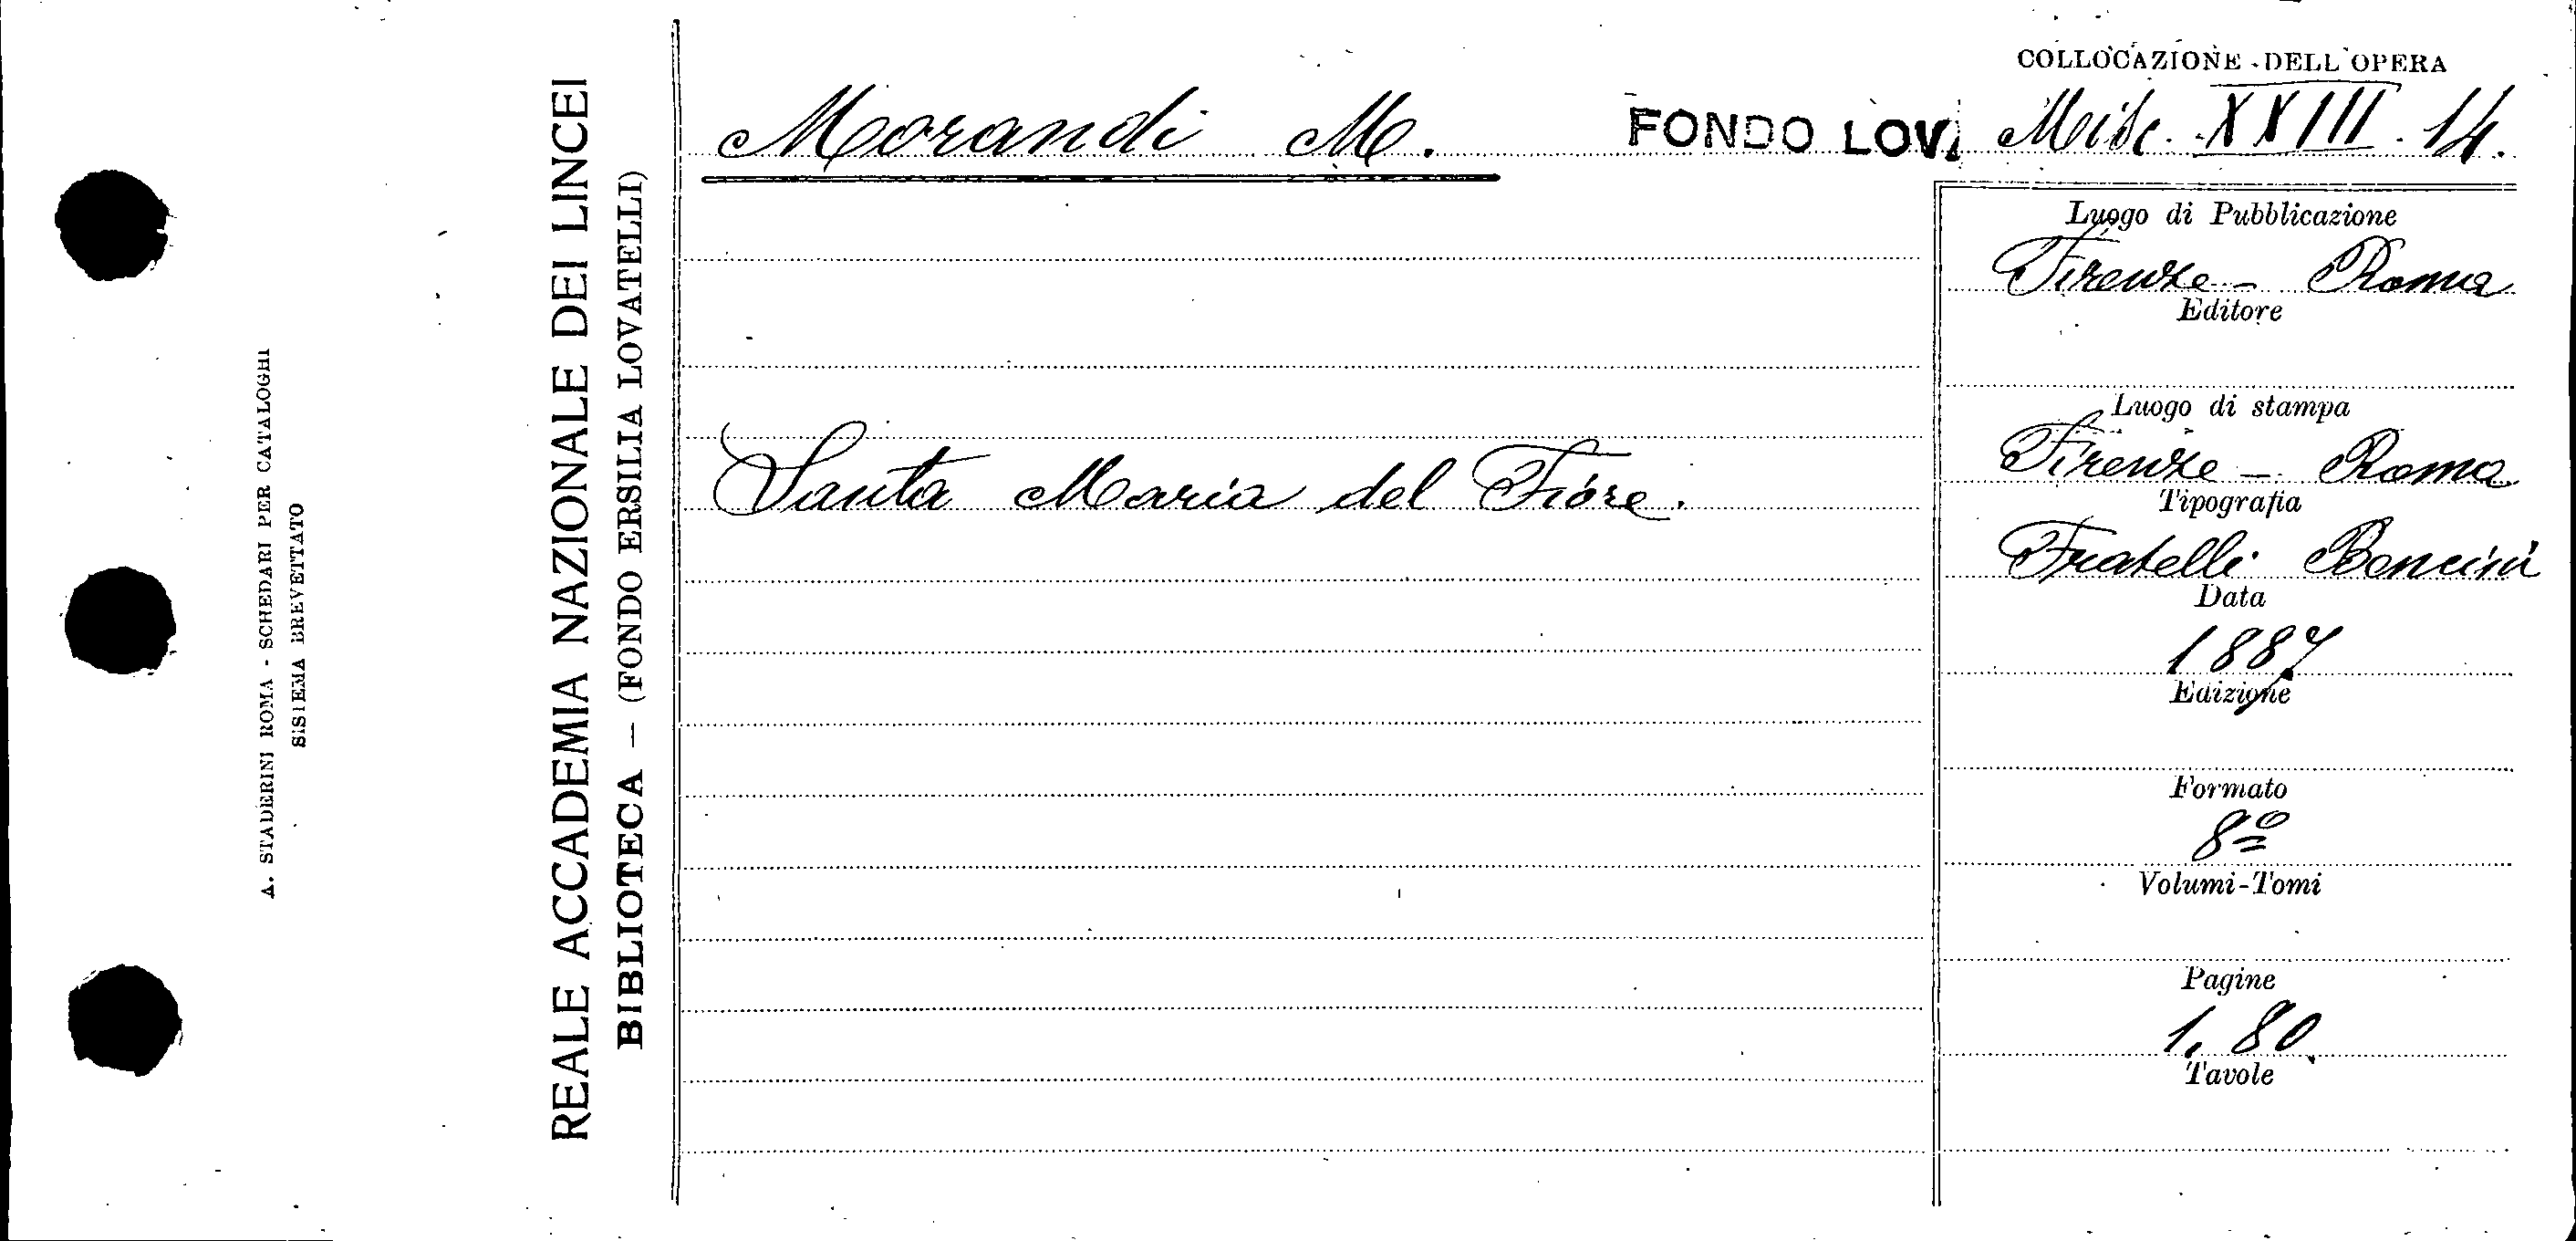 A. STADERINI ROMA - SCHEDARI PER CATALOGHI
SISTEMA BREVETTATO
REALE ACCADEMIA NAZIONALE DEI LINCEI
BIBLIOTECA — (FONDO ERSILIA LOVATELLI)
COLLOCAZIONE DELL'OPERA
Morandi M.
FONDO LOV. Misc. XXIII. 14.
Santa Maria del Fiore.
Luogo di Pubblicazione
Firenze - Roma
Editore
Luogo di stampa
Firenze - Roma
Tipografia
Fratelli Bencini
Data
1887
Edizione
Formato
8º
Volumi-Tomi
Pagine
1, 80
Tavole